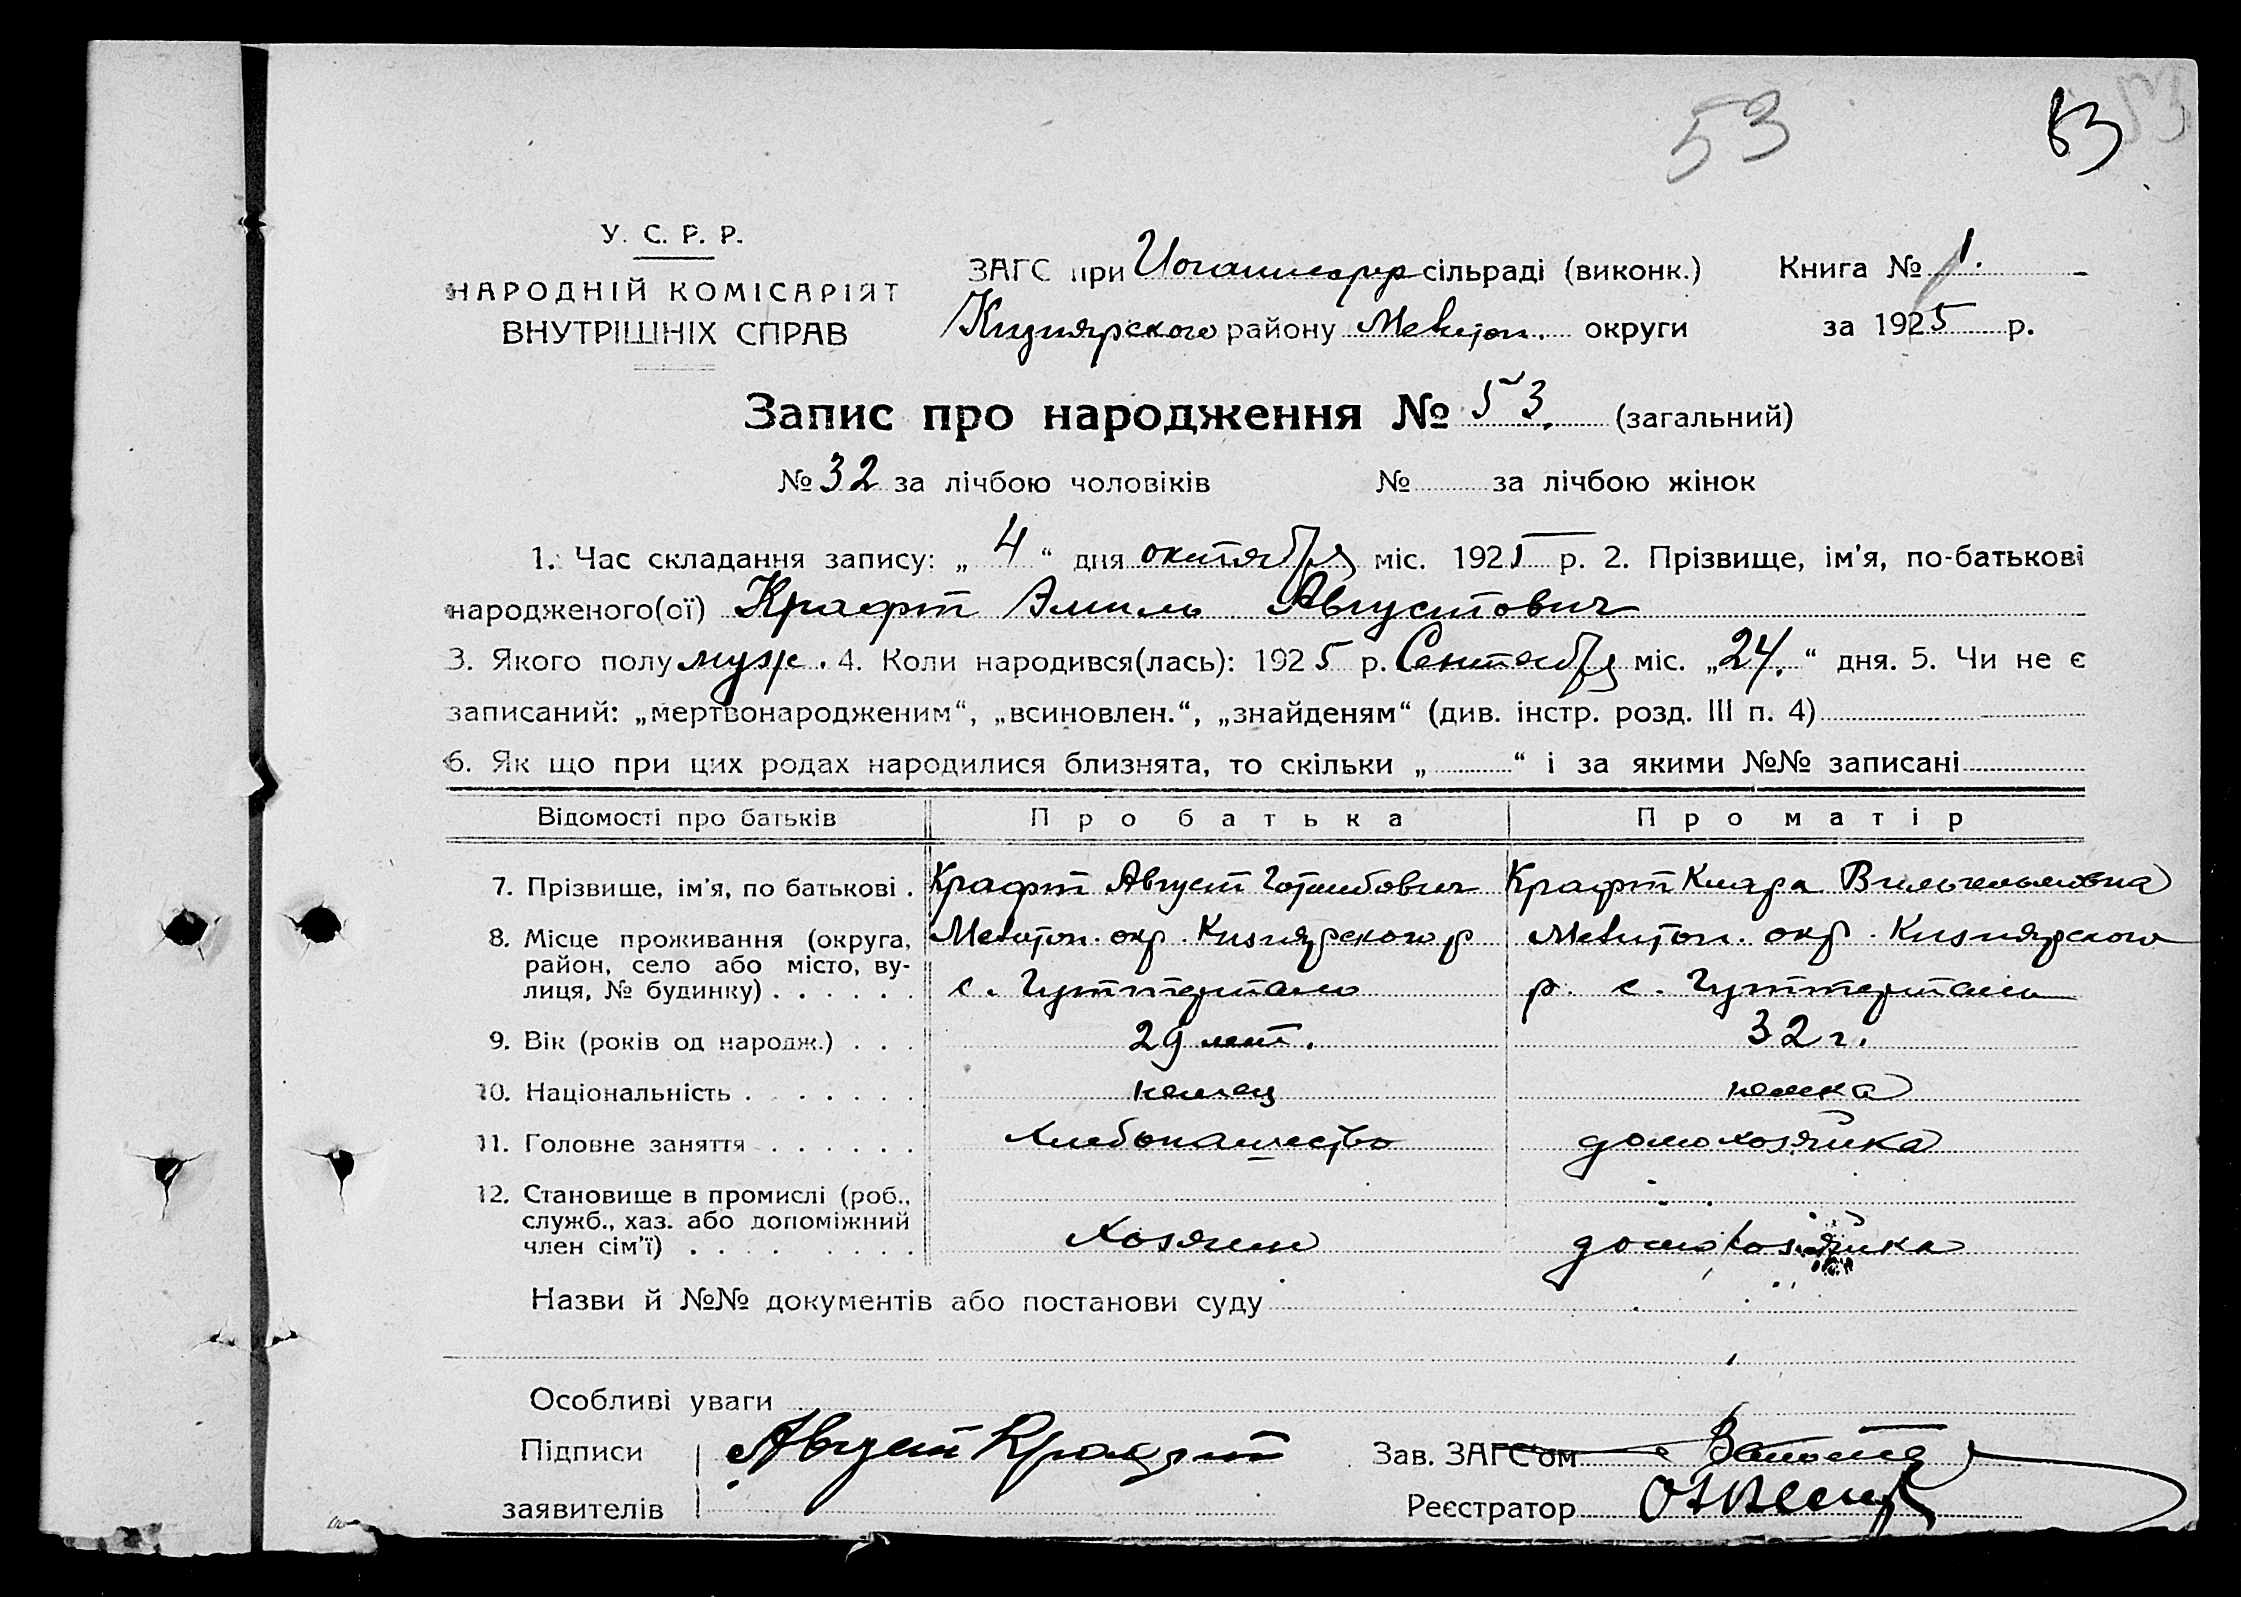 53 53 53
У. С. Р. Р.
НАРОДНІЙ КОМІСАРІЯТ
ВНУТРІШНІХ СПРАВ
ЗАГС при сільраді (виконк.) Книга № 1.
Кизиярского району Мелитоп. округи за 1925 р.
Запис про народження № 53. (загальний)
№ 32 за лічбою чоловіків № за лічбою жінок
1. Час складання запису: „4“ дня октября міс. 1925 р. 2. Прізвище, ім'я, по-батькові
народженого(ої) Крафт Эмиль Августович
3. Якого полу муж. 4. Коли народився(лась): 1925 р. Сентября міс. „24.“ дня. 5. Чи не є
записаний: „мертвонародженим“, „всиновлен.“, „знайденям“ (див. інстр. розд. III п. 4)
6. Як що при цих родах народилися близнята, то скільки „ “ і за якими №№ записані
Відомості про батьків Про батька Про матір
7. Прізвище, ім'я, по батькові . Крафт Август Готлибович Крафт Клара Вильгельмовна
8. Місце проживання (округа, Мелитоп. окр. Кизиярского р Мелитоп. окр. Кизиярского
район, село або місто, ву-
лиця, № будинку) . . . . . . с. Гуттерталь р. с. Гуттерталь
9. Вік (років од народж.) . . . 29 лет. 32 г.
10. Національність . . . . . . . немец немка
11. Головне заняття . . . . . . Хлебопашество домохозяйка
12. Становище в промислі (роб.,
служб., хаз. або допоміжний
член сім'ї) . . . . . . . . Хозяин домохозяйка
Назви й №№ документів або постанови суду
Особливі уваги
Підписи Август Крафт Зав. ЗАГС'ом
заявителів Реєстратор